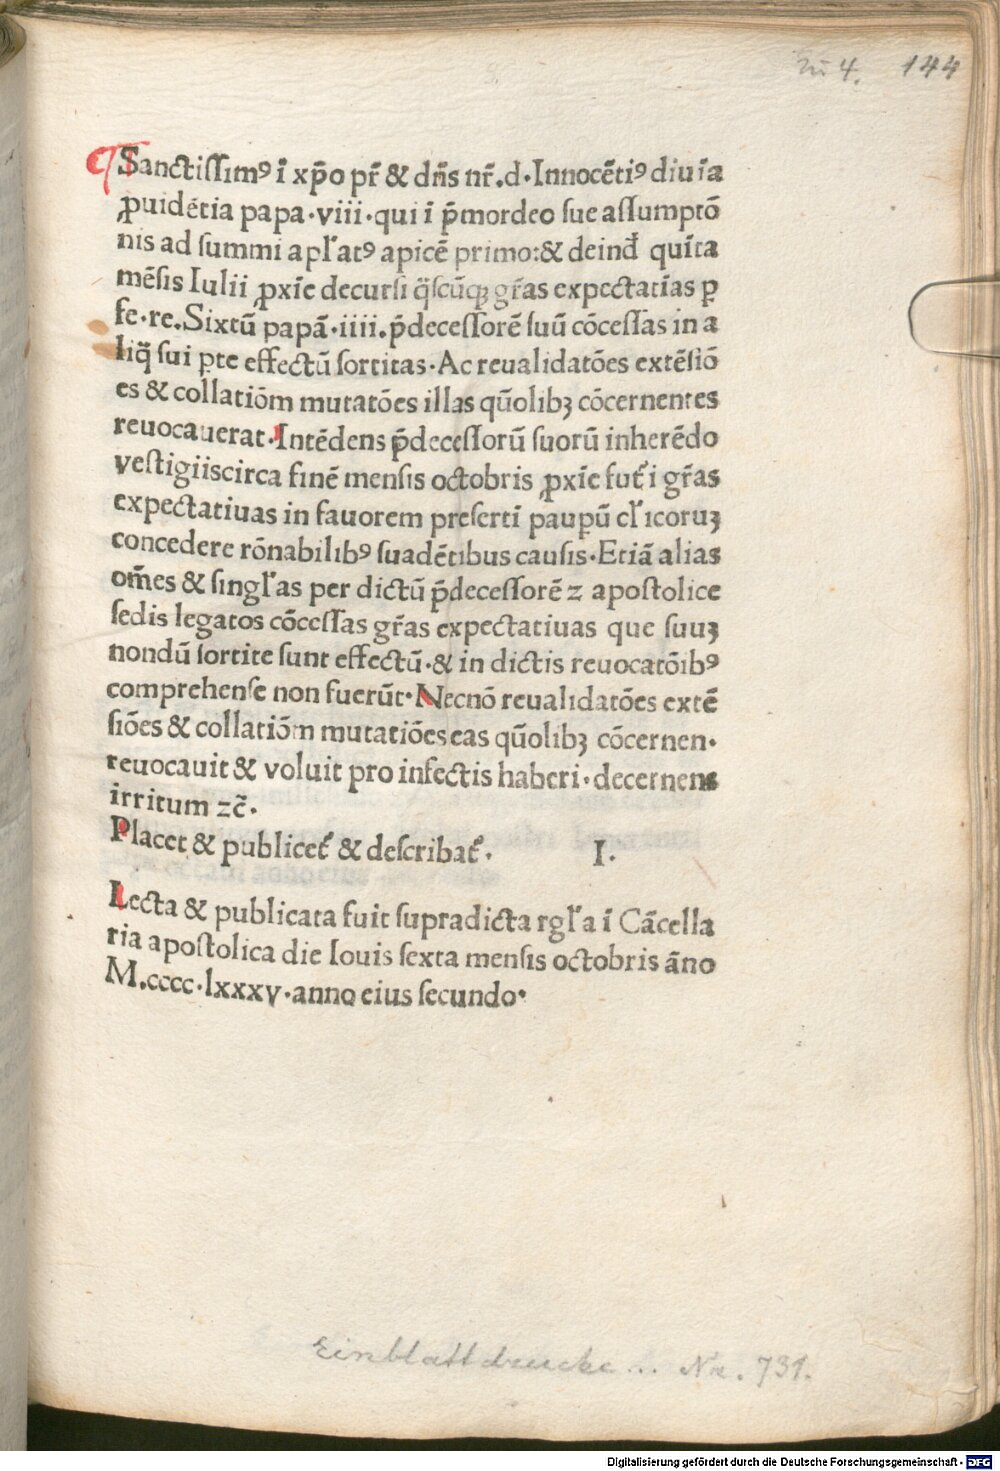 zu 4. 144
¶ Sanctissimꝰ ī xp̄o pr̄ & dn̄s nr̄.d·Innocētiꝰ diuīa
ꝓuidētia papa·viii·qui ī p̄mordeo sue assumptō
nis ad summi apl̓atꝰ apicē primo:& deind̄ quīta
mēsis Iulii ꝓxīe decursi q̄scūqꝫ gr̄as expectatiāas ꝑ
fe·re.Sixtū papā·iiii.p̄decessorē suū cōcessas in a
liq̄ sui ꝑte effectū sortitas·Ac reualidatōes extēsiō
es & collatiōm mutatōes illas qūolibꝫ cōcernentes
reuocauerat·Intēdens p̄decessorū suorū inherēdo
vestigiiscirca finē mensis octobris ꝓxīe fut̓i gr̄as
expectatiuas in fauorem presertī paupū cl̓icoruꝫ
concedere rōnabilibꝰ suadētibus causis·Etiā alias
om̄es & singl̓as per dictū p̄decessorē ꝛ apostolice
sedis legatos cōcessas gr̄as expectatiuas que suuꝫ
nondū sortite sunt effectū·& in dictis reuocatōibꝰ
comprehense non fuerūt·Necnō reualidatōes extē
siōes & collatiōm mutatiōes eas qūolibꝫ cōcernen·
reuocauit & voluit pro infectis haberi·decernens
irritum ꝛc̄·
Placet & publicet̓ & describat̓· I·
Lecta & publicata fuit supradicta rgl̓a ī Cācella
ria apostolica die Iouis sexta mensis octobris āno
M.cccc·lxxxv·anno eius secundo·
Einblattdrucke... Nr. 731.
Digitalisierung gefördert durch die Deutsche Forschungsgemeinschaft - DFG